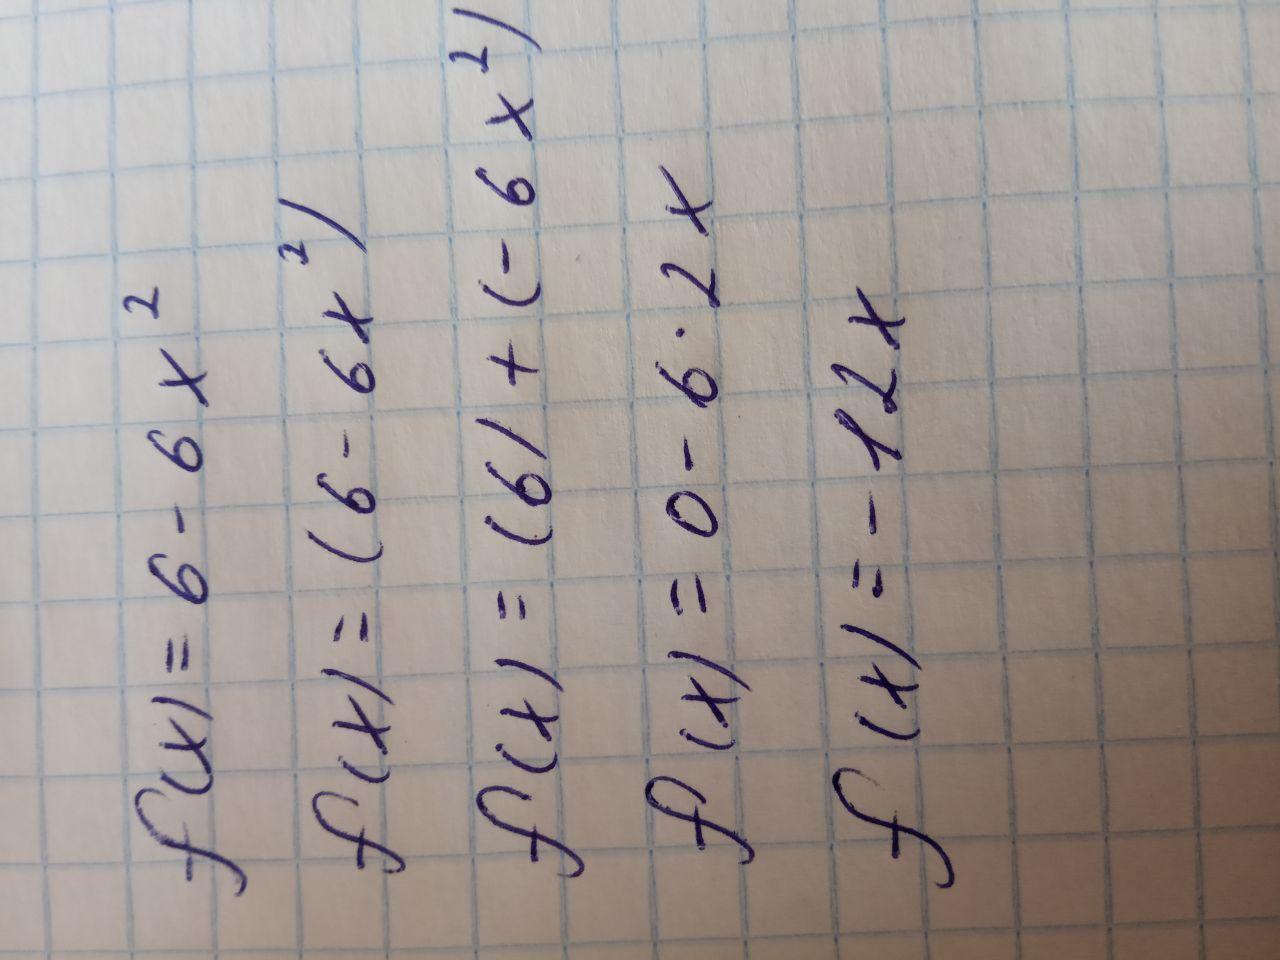 f(x) = 6 - 6x²
f(x) = (6 - 6x²)
f(x) = (6) + (-6x²)
f(x) = 0 - 6 · 2x
f(x) = -12x